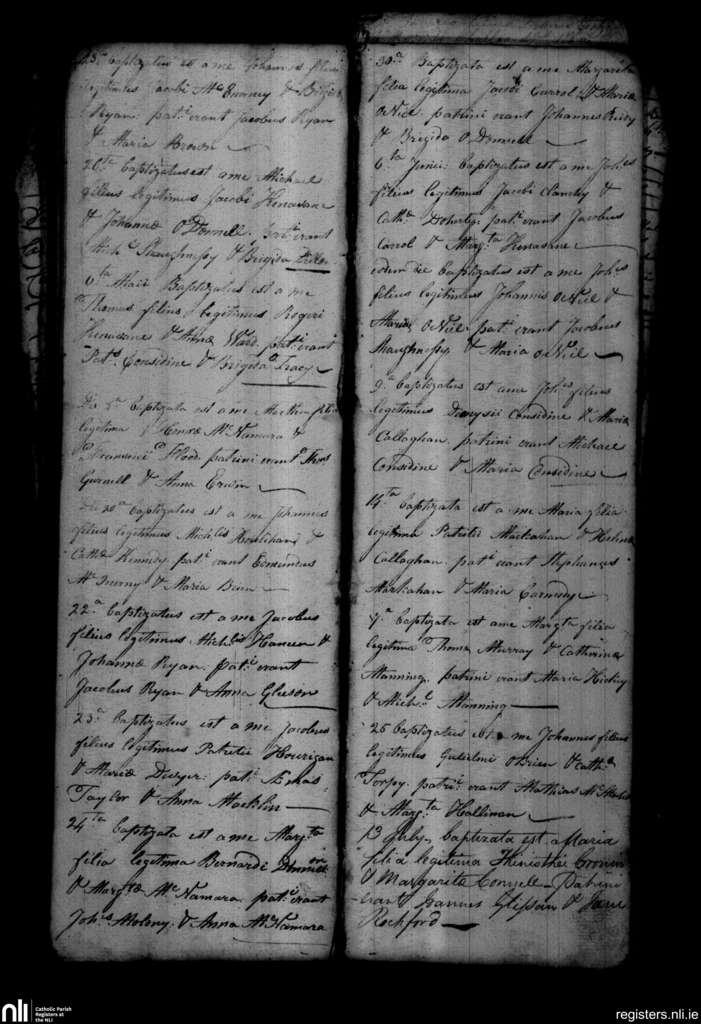 23ª baptizatus est a me Johannes filius
legitimus Jacobi McEnerney & Brigidæ
Ryan. patⁱ erant Jacobus Ryan
& Maria Brown
26ta baptizatus est a me Michael
filius legitimus Jacobi Kenavane
& Johannæ O'Donnell. patⁱ erant
Michˡ Shaughnessy & Brigida
6ta Maii Baptizatus est a me
Thomas filius legitimus Rogeri
Kenavanes & Annæ Ward. patⁱ erant
Patᵗ Considine & Brigida Tracy
Die 5ª baptizata est a me Martha filia
legitima Henræ McNamara &
Franciscæ Hood. patrini erant Thoˢ
Gurnell & Anna Erwin
Die 20ª baptizatus est a me Johannes
filius legitimus Michˡis &
Cathæ Kennedy patⁱ erant Edmundus
& Maria
22ª baptizatus est a me Jacobus
filius legitimus Michˡis Haneen &
Johannæ Ryan. patⁱ erant
Jacobus Ryan & Anna Gleeson
23ª baptizatus est a me Jacobus
filius legitimus Patritii Hourigan
& Mariæ Dwyer. patⁱ Æneas
Taylor & Anna Macklin
24ta baptizata est a me Margta
filia legitima Bernardi
& Margtæ McNamara. patⁱ erant
Johˢ Molony. & Anna McNamara
30ª Baptizata est a me Margarita
filia legitima Jacobi Carrol & Mariæ
O'Neil. patrini erant Johannes Reidy
& Brigida O'Donnell
6ta Junii. baptizatus est a me Johᵉˢ
filius legitimus Jacobi Clanchy &
Cathæ Doherty. patⁱ erant Jacobus
Carrol & Margta Kenavane
eodem die baptizatus est a me Johᵉˢ
filius legitimus Johannis O'Neil &
Mariæ O'Neil. patⁱ erant Jacobus
Shaughnessy & Maria O'Neil
9ª baptizatus est a me Johᵉˢ filius
legitimus Dionysii Considine & Mariæ
Callaghan. patrini erant Michael
Considine & Maria Considine
14ta baptizata est a me Maria filia
legitima Patritii Markahan & Helenæ
Callaghan. patⁱ erant Stephanus
Markahan & Maria Carmody
7ª baptizata est a me Margta filia
legitima Thomæ Murray & Catherinæ
Manning. patrini erant Maria Hickey
& Michˡ Manning
26 baptizatus est a me Johannes filius
legitimus Gulielmi O'Brien & Cathæ
Torpy. patrⁱ erant Mathias
& Margta Halliman
13 July. baptizata est a Maria
filia legitima Cronin
& Margarita Connell Patrini
erant Joannes Glissan & Jane
Rockford
nli
Catholic Parish
Registers at
the NLI
registers.nli.ie